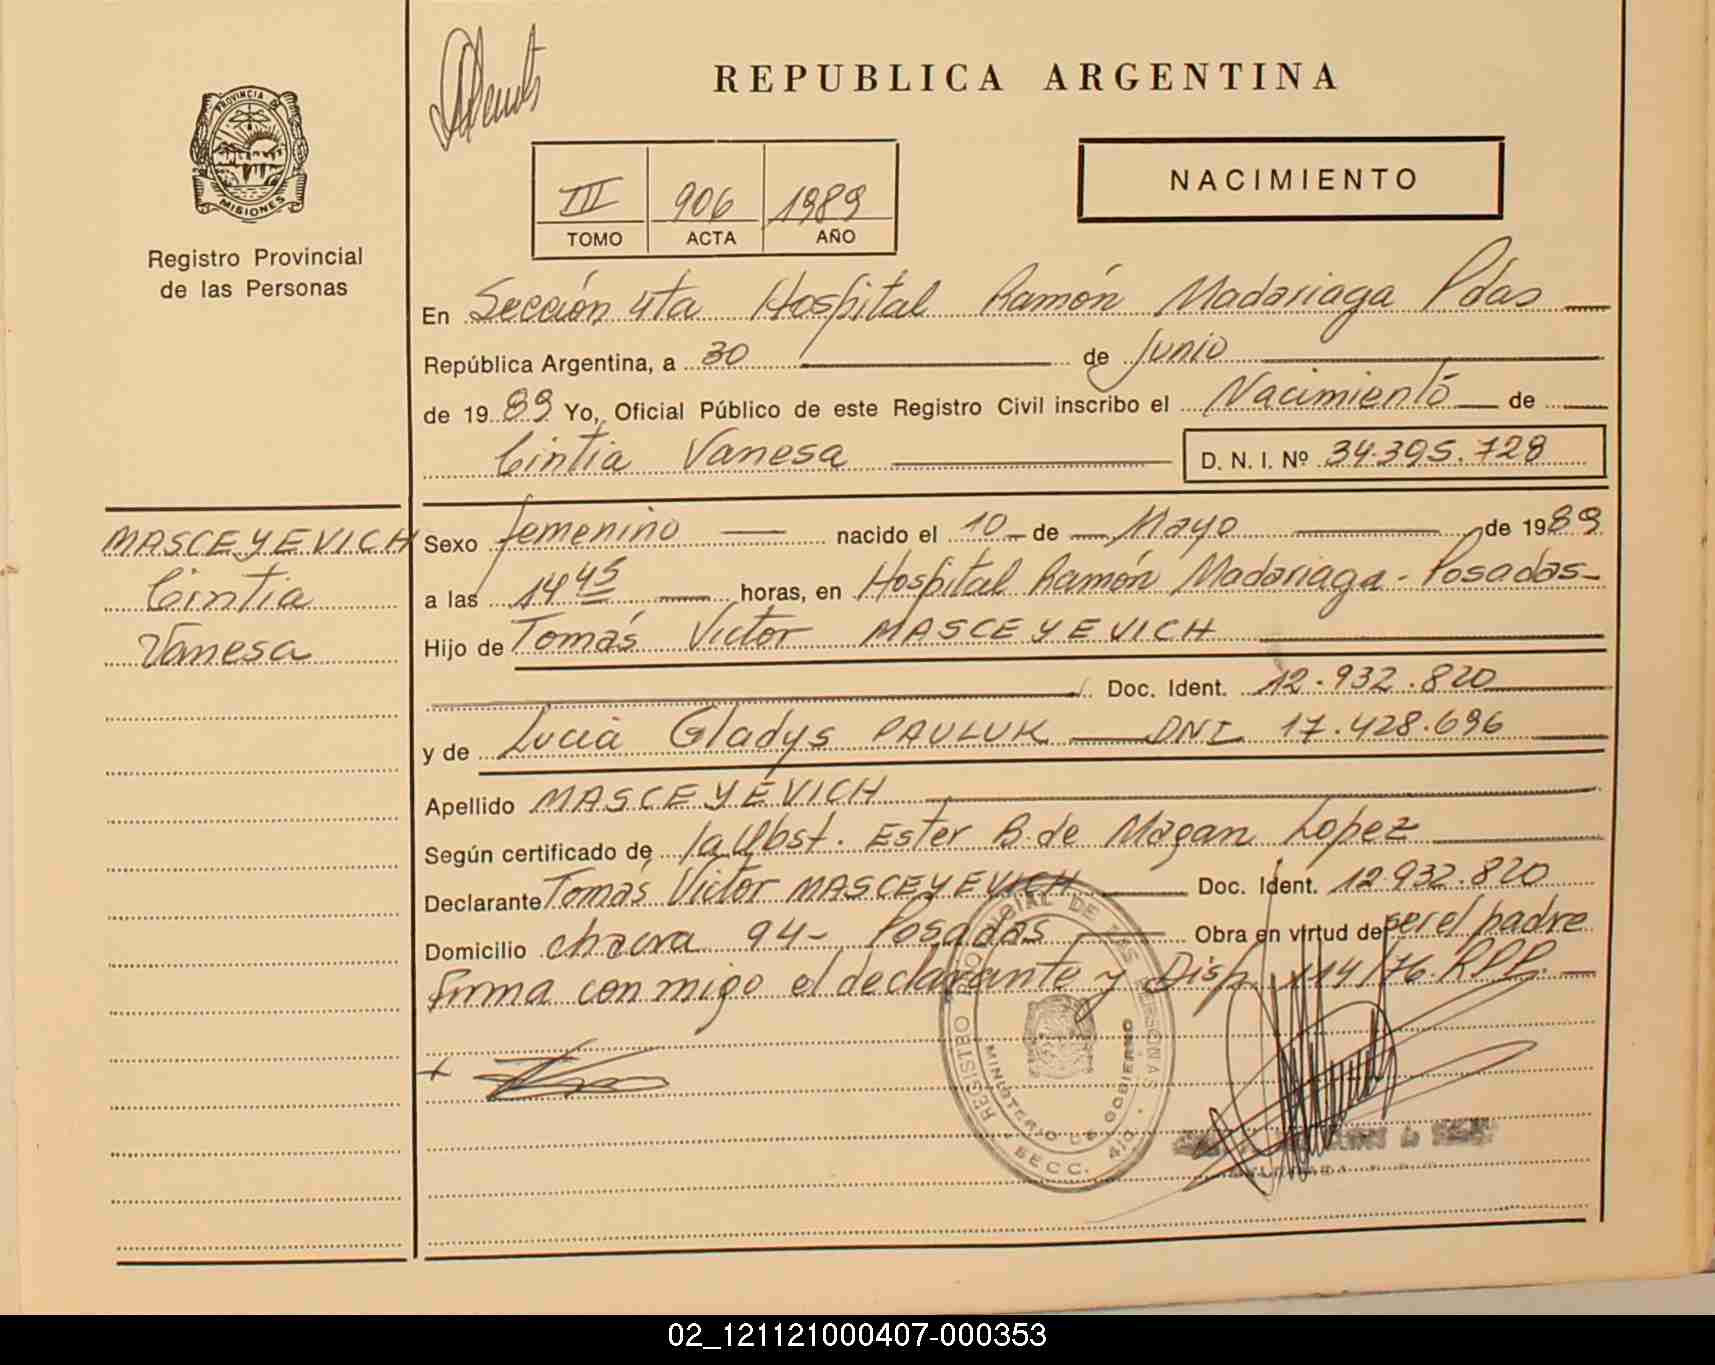 REPUBLICA ARGENTINA
PROVINCIA DE
MISIONES
Registro Provincial
de las Personas
NACIMIENTO
III 906 1989
TOMO ACTA AÑO
En Sección 4ta Hospital Ramón Madariaga Pdas
República Argentina, a 30 de Junio
de 1989 Yo, Oficial Público de este Registro Civil inscribo el Nacimiento de
Cintia Vanesa D. N. I. Nº 34.395.728
MASCEYEVICH
Cintia
Vanesa
Sexo femenino nacido el 10 de Mayo de 1989
a las 14 45 horas, en Hospital Ramón Madariaga - Posadas-
Hijo de Tomás Victor MASCEYEVICH
Doc. Ident. 12.932.820
y de Lucia Gladys PAULUK DNI 17.428.696
Apellido MASCEYEVICH
Según certificado de la Obst. Ester B. de Magan Lopez
Declarante Tomás Victor MASCEYEVICH Doc. Ident. 12.932.820
Domicilio chacra 94- Posadas Obra en virtud de ser el padre
firma conmigo el declarante y Disp. 114/76 RPP.
REGISTRO PROVINCIAL DE LAS PERSONAS
MINISTERIO DE GOBIERNO
SECC. 4ta.
02_121121000407-000353